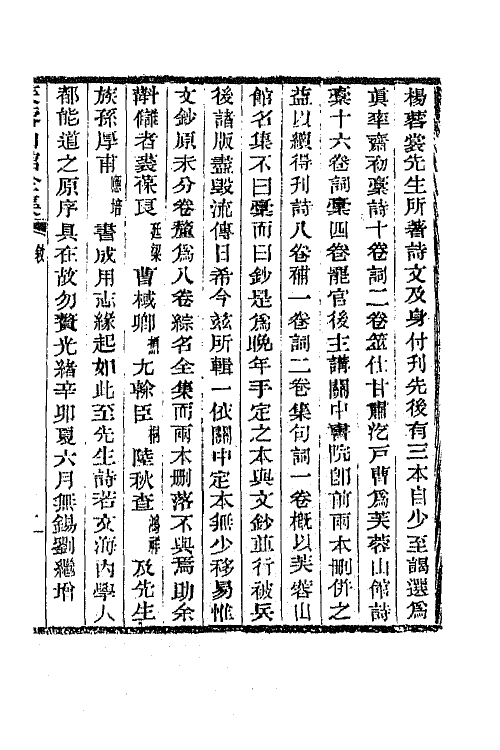 楊蓉裳先生所著詩文及身付刊先後有三本自少至謁選爲
眞率齋初稾詩十卷詞二卷筮仕甘肅汔戸曹爲芙蓉山館詩
稾十六卷詞稾四卷罷官後主講關中書院卽前兩本刪併之
益以續得刊詩八卷補一卷詞二卷集句詞一卷槪以芙蓉山
館名集不曰稾而曰鈔是爲晚年手定之本與文鈔並行被兵
後諸版盡毀流傳日希今兹所輯一依關中定本無少移易惟
文鈔原未分卷釐爲八卷綜名全集而兩本刪落不與焉助余
讎者裘葆良廷梁曹棫卿尤翰臣桐陸秋查鴻祥及先生
族孫厚甫應培書成用志緣起如此至先生詩若文海內學人
都能道之原序具在故勿贅光緒辛卯夏六月無錫劉繼增
芙蓉山館全集 敘 一